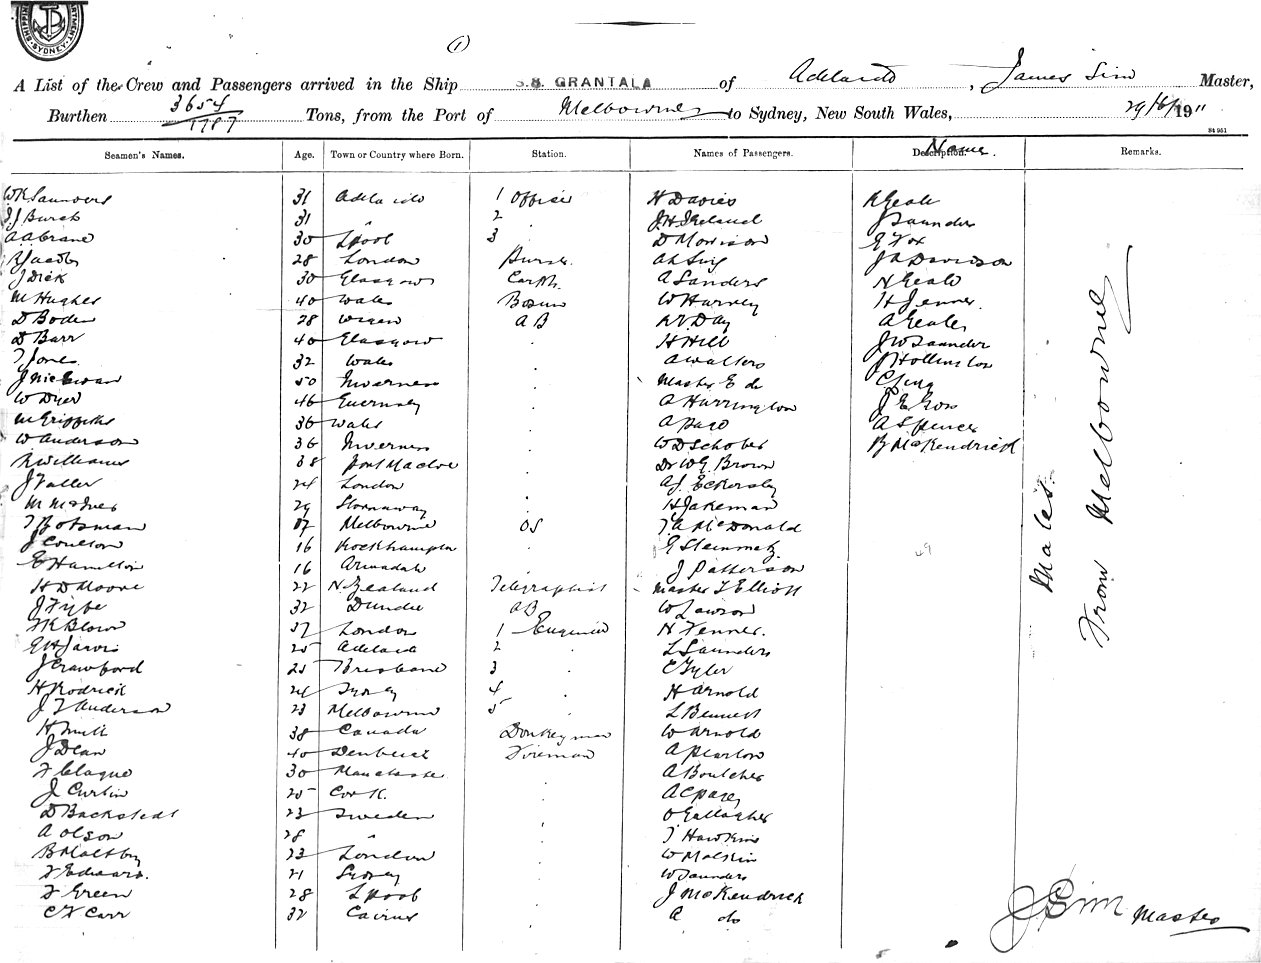 SHIPPING DEPARTMENT SYDNEY
(1)
A List of the Crew and Passengers arrived in the Ship S.S. GRANTALA of Adelaide, James Sim Master,
Burthen 3654 / 1787 Tons, from the Port of Melbourne to Sydney, New South Wales, 29/6/1911
84 951
Seamen's Names. Age. Town or Country where Born. Station. Names of Passengers. Description. Name. Remarks.
W R Saunders 31 Adelaide 1 Officer H Davies R Geale
J J Burch 31 " 2 J H Ireland J Saunders
A A Crane 30 Lpool 3 D Morrison E Fox
R Jacobs 28 London Purser J A Davidson
J Dick 30 Glasgow Carptr A Sanders N Geale
M Hughes 40 Wales Bosun W Harvey H Jenner
D Boden 28 Wigan A B Day A Geale
D Barr 40 Glasgow H Hill J W Saunder
T Jones 32 Wales A Walters J Hollinston
J McEwan 50 Inverness Master E do C Jung
W Dyer 46 Guernsey A Harrington J E Goss
M Griffiths 36 Wales A Pago A Spencer
W Anderson 36 Inverness W D Schober R McKendrick
R Williams 38 Port Madoc Dr W G Brown
J Faller 24 London A J Eckersley
M McInes 29 Stornaway H Jakeman
T Botsman 17 Melbourne OS McDonald
J Coulton 16 Rockhampton G Steinmetz
49
E Hamilton 16 Armadale J Patterson
H D Moore 22 N. Zealand Telegraphist Master L Elliott
J Fyfe 32 Dundee AB W Lawson
Blown 37 London 1 Engineer H Fenner.
E H Jarvis 25 Adelaide 2 L Saunders
J Crawford 25 Brisbane 3 C Tyler
H Rodrick 24 Sydney 4 H Arnold
J T Anderson 23 Melbourne 5 L Bennett
H Smith 38 Canada Donkeyman W Arnold
J Dean 40 Fireman
F Clague 30 Manchester A Boulcher
J Curtin 25 Cork. A C Paxey
D Backstedt 23 Sweden O Gallagher
A Olson 28 " T Hawkins
B Maltby 23 London W Malskin
F Edwards. 21 Sydney W Saunders
F Green 28 Lpool J McKendrick
C F Carr 32 Cairns A do
Males
From Melbourne
J Sim Master